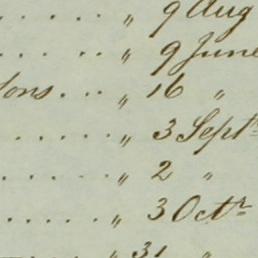 . . . . „ 9 Aug
. . . . „ 9 June
. . . „ 16 „
. . . . . . „ 3 Septr
. . . . . . „ 2 „
. . . . . . „ 3 Octr
„ 31 „